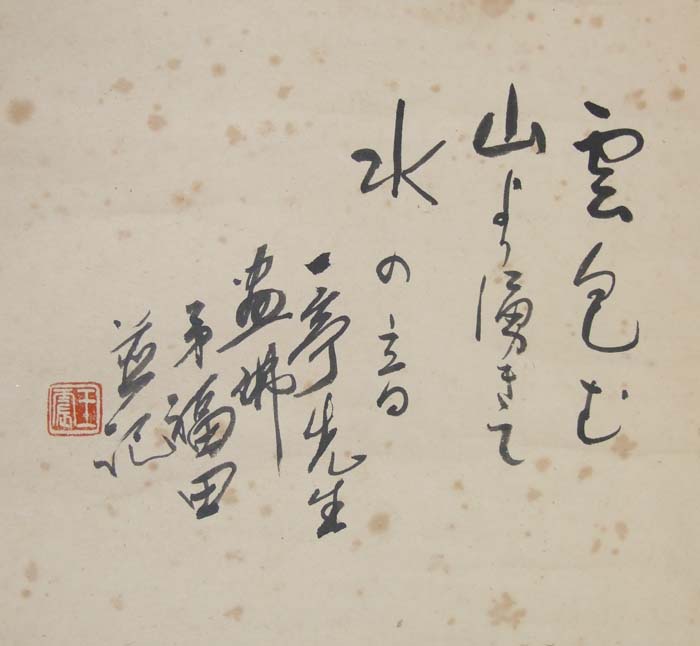 雲包む
山より湧きて
水の音
一亭先生
画佛
弟福田
並記